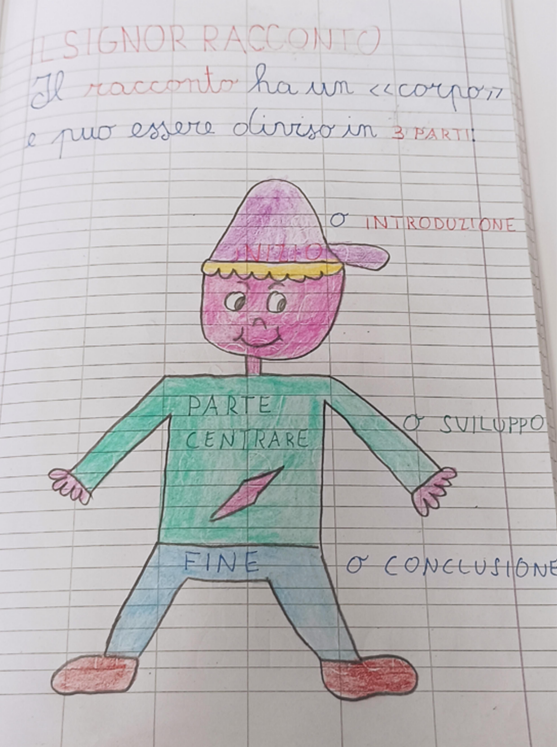 IL SIGNOR RACCONTO
Il racconto ha un «corpo»
e può essere diviso in 3 PARTI:
O INTRODUZIONE
INIZIO
PARTE
CENTRARE
O SVILUPPO
FINE
O CONCLUSIONE